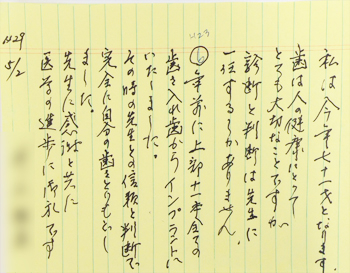 私は今年七十一才となります。
歯は人の健康にとって
とても大切なことですが
診断と判断は先生に
一任するしかありません。
⑥年前に上部十一本全ての
歯を入れ歯からインプラントに
いたしました。
その時の先生との信頼と判断で
完全に自分の歯をとりもどし
ました。
先生に感謝と共に
医学の進歩に御礼です
H29
5/2
H23